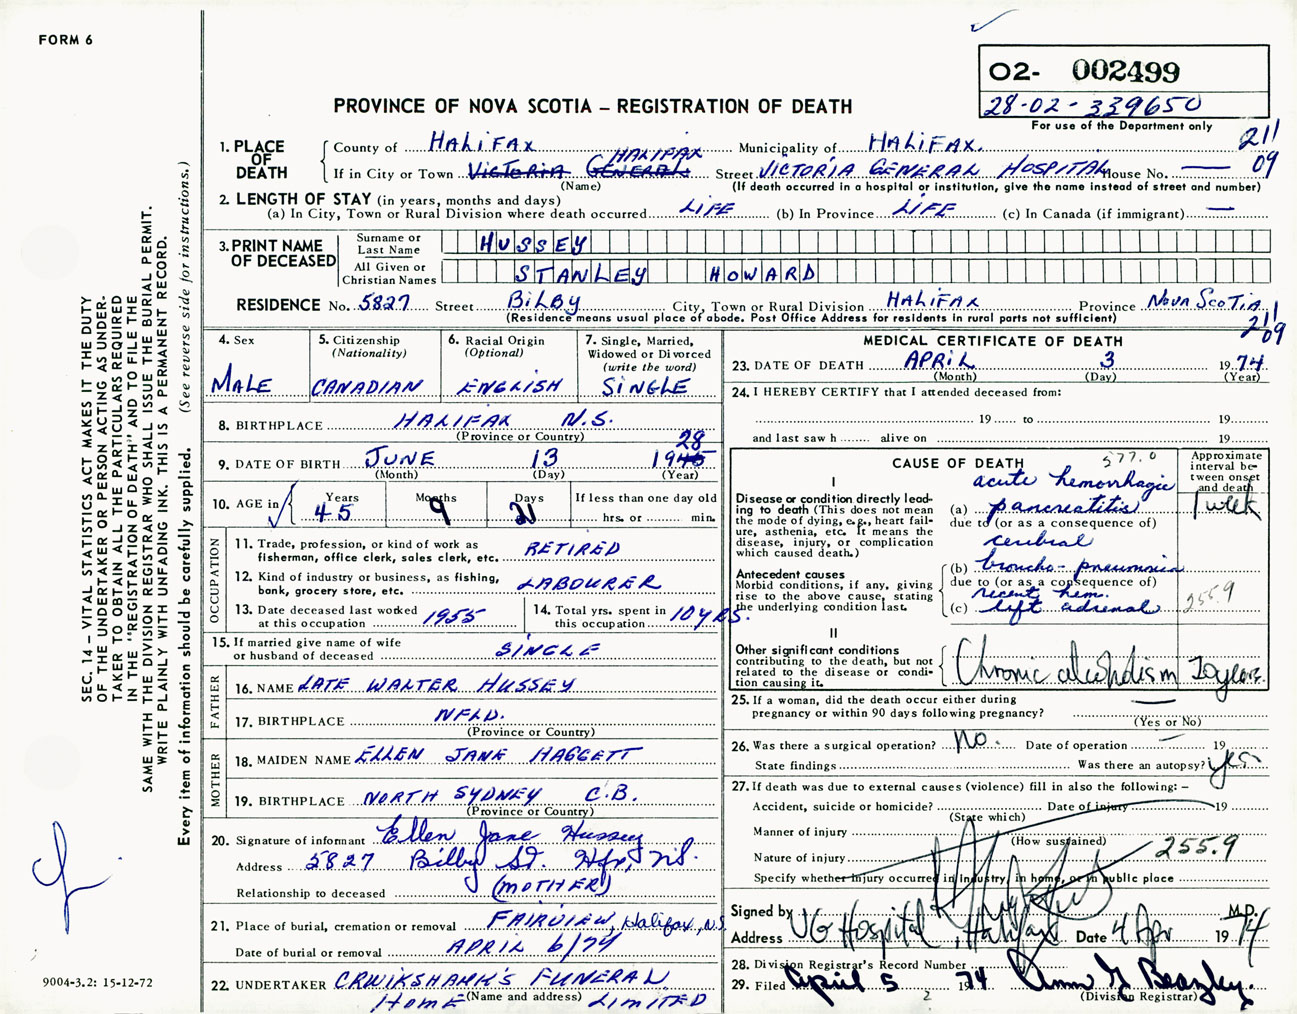 FORM 6
02- 002499
28-02-339650
For use of the Department only
PROVINCE OF NOVA SCOTIA – REGISTRATION OF DEATH
1. PLACE OF DEATH
County of HALIFAX Municipality of HALIFAX. 211
HALIFAX
If in City or Town VICTORIA GENERAL Street VICTORIA GENERAL HOSPITAL House No. — 09
(Name) (If death occurred in a hospital or institution, give the name instead of street and number)
2. LENGTH OF STAY (in years, months and days)
(a) In City, Town or Rural Division where death occurred LIFE (b) In Province LIFE (c) In Canada (if immigrant) —
3. PRINT NAME OF DECEASED
Surname or Last Name HUSSEY
All Given or Christian Names STANLEY HOWARD
RESIDENCE No. 5827 Street BILBY City, Town or Rural Division HALIFAX Province NOVA SCOTIA
(Residence means usual place of abode. Post Office Address for residents in rural parts not sufficient)
211
09
4. Sex
MALE
5. Citizenship
(Nationality)
CANADIAN
6. Racial Origin
(Optional)
ENGLISH
7. Single, Married,
Widowed or Divorced
(write the word)
SINGLE
8. BIRTHPLACE HALIFAX N.S.
(Province or Country)
28
9. DATE OF BIRTH JUNE 13 1945
(Month) (Day) (Year)
10. AGE in Years Months Days If less than one day old
45 9 21 hrs. or min.
OCCUPATION
11. Trade, profession, or kind of work as
fisherman, office clerk, sales clerk, etc. RETIRED
12. Kind of industry or business, as fishing,
bank, grocery store, etc. LABOURER
13. Date deceased last worked
at this occupation 1955
14. Total yrs. spent in
this occupation 10 YRS.
15. If married give name of wife
or husband of deceased SINGLE
FATHER
16. NAME LATE WALTER HUSSEY
17. BIRTHPLACE NFLD.
(Province or Country)
MOTHER
18. MAIDEN NAME ELLEN JANE HAGGETT
19. BIRTHPLACE NORTH SYDNEY C.B.
(Province or Country)
20. Signature of informant Ellen Jane Hussey
Address 5827 Bilby St. Hfx, N.S.
Relationship to deceased (MOTHER)
21. Place of burial, cremation or removal FAIRVIEW, Halifax, N.S.
Date of burial or removal APRIL 6/74
22. UNDERTAKER CRWIKSHANK'S FUNERAL
HOME (Name and address) LIMITED
MEDICAL CERTIFICATE OF DEATH
23. DATE OF DEATH APRIL 3 1974
(Month) (Day) (Year)
24. I HEREBY CERTIFY that I attended deceased from:
19 to 19
and last saw h alive on 19
CAUSE OF DEATH 577.0
Approximate
interval be-
tween onset
and death
I
Disease or condition directly lead-
ing to death (This does not mean
the mode of dying, e.g., heart fail-
ure, asthenia, etc. It means the
disease, injury, or complication
which caused death.)
acute hemorrhagic
(a) pancreatitis 1 week
due to (or as a consequence of)
cerebral
Antecedent causes
Morbid conditions, if any, giving
rise to the above cause, stating
the underlying condition last.
(b) broncho-pneumonia
due to (or as a consequence of)
recent hem.
(c) left adrenal 255.9
II
Other significant conditions
contributing to the death, but not
related to the disease or condi-
tion causing it.
Chronic alcoholism 20 years.
25. If a woman, did the death occur either during
pregnancy or within 90 days following pregnancy? —
(Yes or No)
26. Was there a surgical operation? No. Date of operation — 19
State findings Was there an autopsy? yes
27. If death was due to external causes (violence) fill in also the following: –
Accident, suicide or homicide? Date of injury 19
(State which)
Manner of injury
(How sustained)
Nature of injury 255.9
Specify whether injury occurred in industry, in home, or in public place
Signed by M.D.
Address VG Hospital, Halifax Date 4 Apr 1974
28. Division Registrar's Record Number
29. Filed April 5 1974 Ann G Beazley.
2 (Division Registrar)
SEC. 14 – VITAL STATISTICS ACT MAKES IT THE DUTY
OF THE UNDERTAKER OR PERSON ACTING AS UNDER-
TAKER TO OBTAIN ALL THE PARTICULARS REQUIRED
IN THE "REGISTRATION OF DEATH" AND TO FILE THE
SAME WITH THE DIVISION REGISTRAR WHO SHALL ISSUE THE BURIAL PERMIT.
WRITE PLAINLY WITH UNFADING INK. THIS IS A PERMANENT RECORD.
Every item of information should be carefully supplied. (See reverse side for instructions.)
9004-3.2: 15-12-72